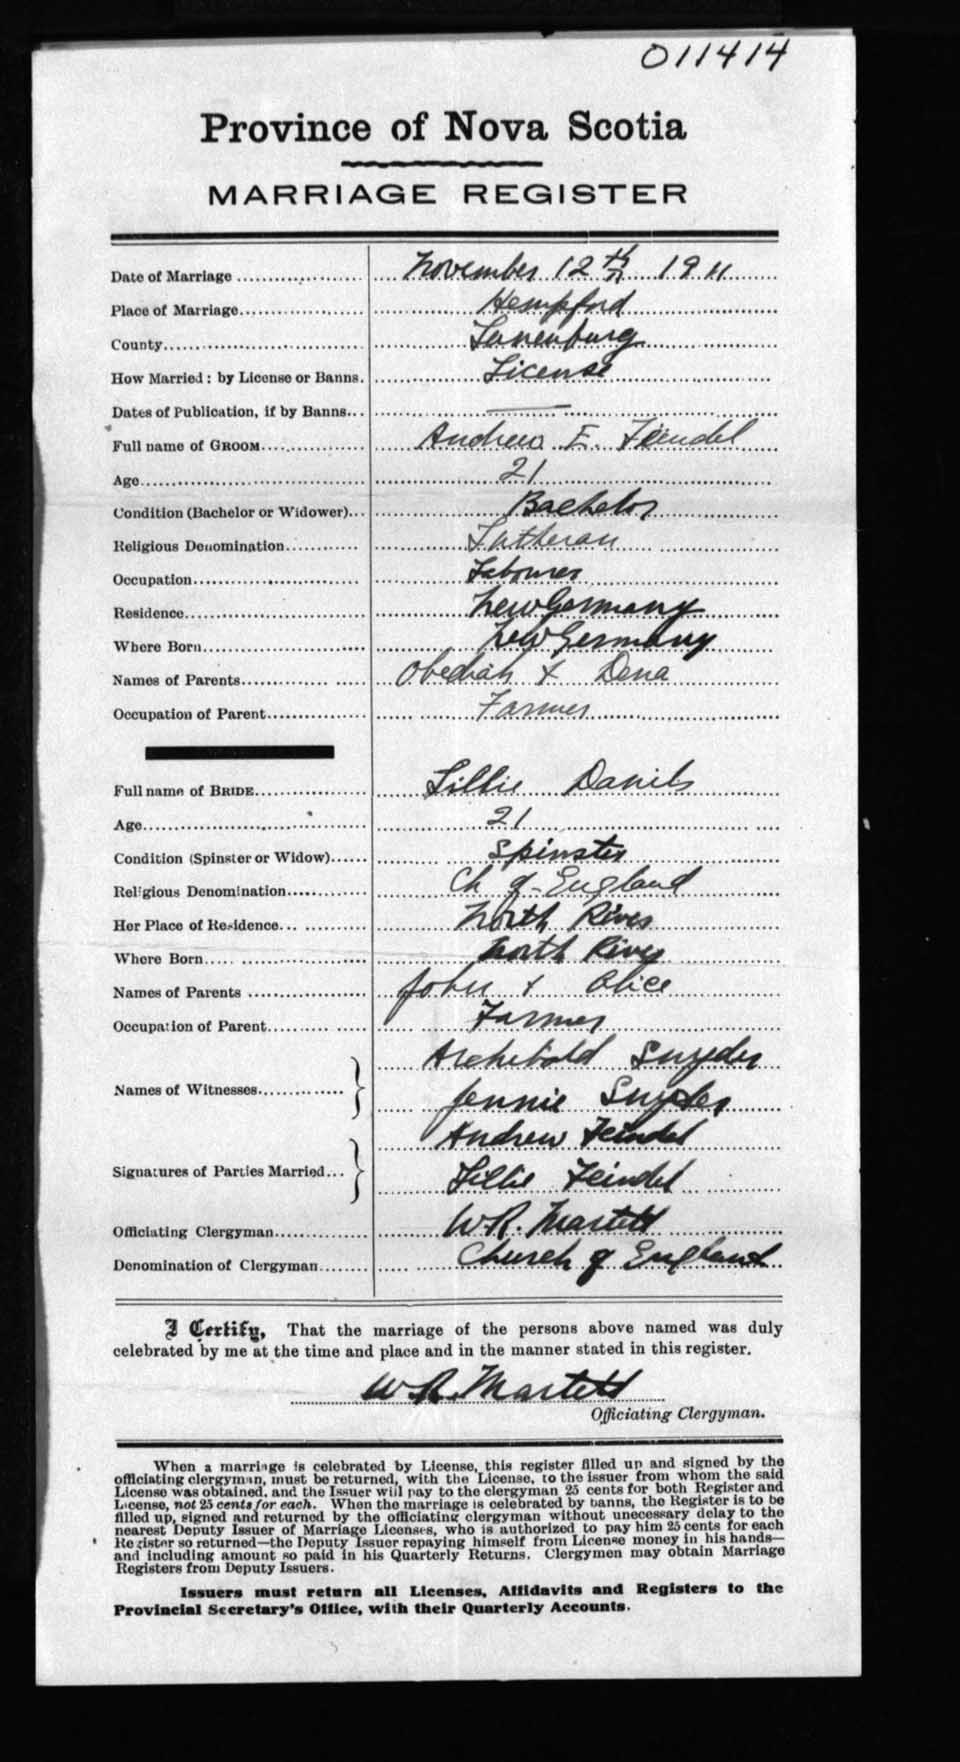 011414
Province of Nova Scotia
MARRIAGE REGISTER
Date of Marriage November 12th 1911
Place of Marriage Hempford
County Lunenburg
How Married: by License or Banns. License
Dates of Publication, if by Banns... —
Full name of GROOM Andrew E. Feindel
Age 21
Condition (Bachelor or Widower) Bachelor
Religious Denomination Lutheran
Occupation Labourer
Residence New Germany
Where Born New Germany
Names of Parents Obediah & Dena
Occupation of Parent Farmer
Full name of BRIDE Lillie Daniels
Age 21
Condition (Spinster or Widow) Spinster
Religious Denomination Ch of England
Her Place of Residence North River
Where Born North River
Names of Parents John & Alice
Occupation of Parent Farmer
Archibald Snyder
Names of Witnesses
Jennie Snyder
Andrew Feindel
Signatures of Parties Married
Lillie Feindel
Officiating Clergyman W.R. Martell
Denomination of Clergyman Church of England
I Certify, That the marriage of the persons above named was duly
celebrated by me at the time and place and in the manner stated in this register.
W.R. Martell
Officiating Clergyman.
When a marriage is celebrated by License, this register filled up and signed by the
officiating clergyman, must be returned, with the License, to the issuer from whom the said
License was obtained, and the Issuer will pay to the clergyman 25 cents for both Register and
License, not 25 cents for each. When the marriage is celebrated by banns, the Register is to be
filled up, signed and returned by the officiating clergyman without unecessary delay to the
nearest Deputy Issuer of Marriage Licenses, who is authorized to pay him 25 cents for each
Register so returned—the Deputy Issuer repaying himself from License money in his hands—
and including amount so paid in his Quarterly Returns. Clergymen may obtain Marriage
Registers from Deputy Issuers.
Issuers must return all Licenses, Affidavits and Registers to the
Provincial Secretary's Office, with their Quarterly Accounts.